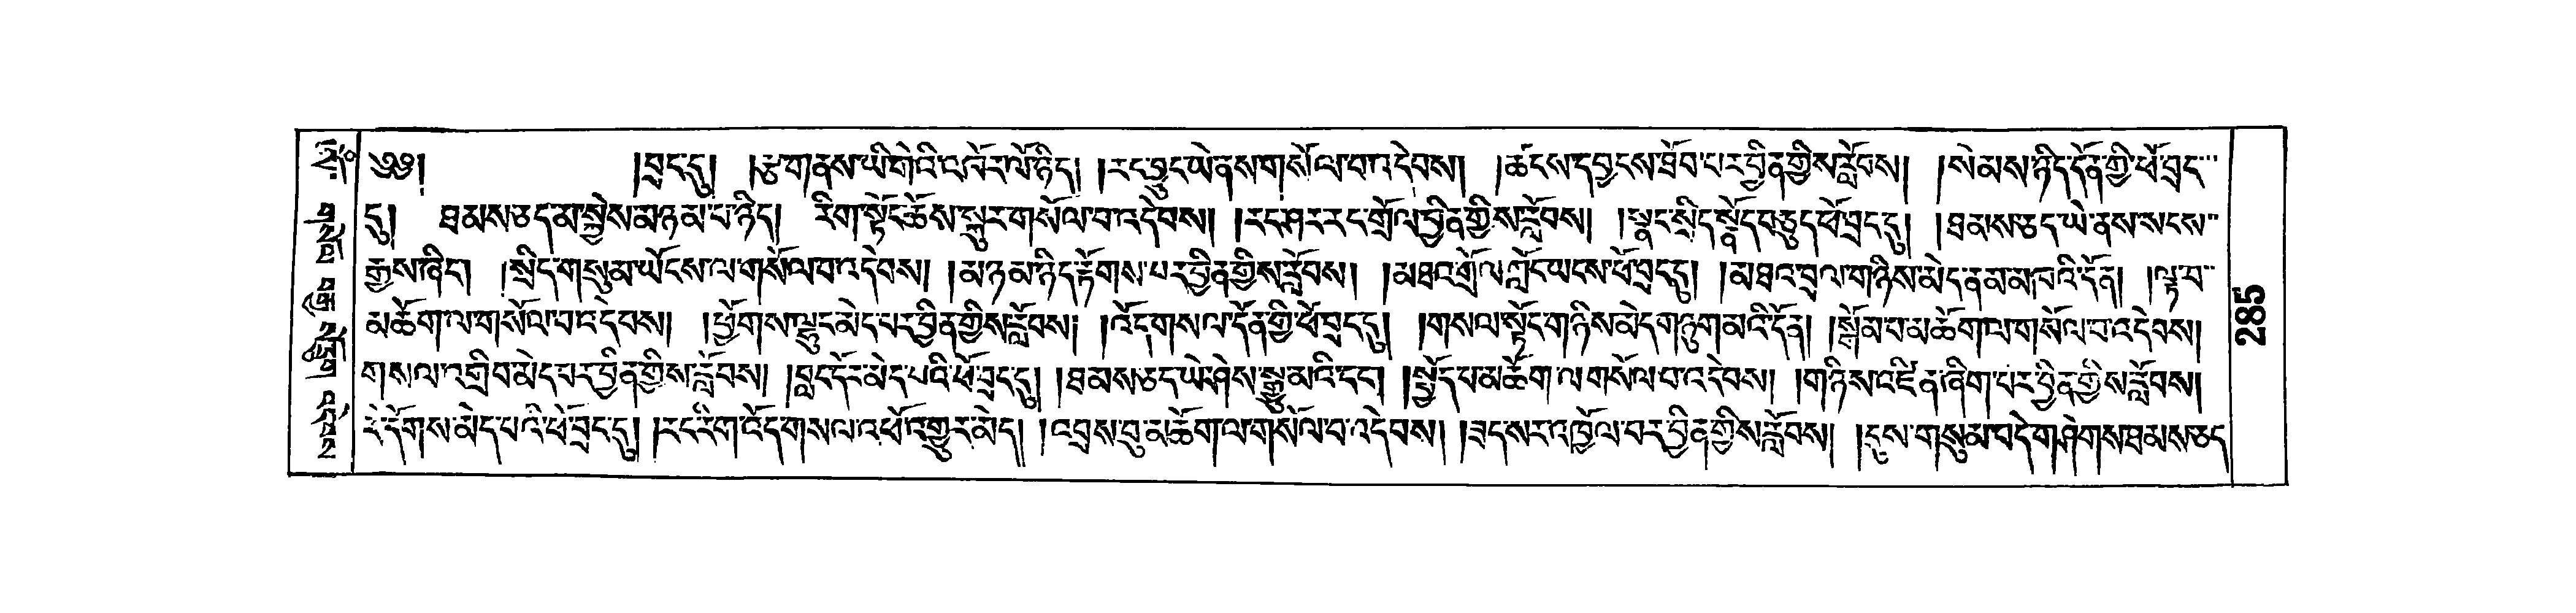 ༄༅། །བྲང་དུ། །རྩ་གནས་ཡི་གེའི་འཁོར་ལོ་ཉིད། །རང་བྱུང་ཡེ་ནས་གསོལ་བ་འདེབས། །ཚངས་དབྱངས་ཐོབ་པར་བྱིན་གྱིས་རློབས། །སེམས་ཉིད་དོན་གྱི་ཕོ་བྲང་
དུ། ཐམས་ཅད་མ་སྐྱེས་མཉམ་པ་ཉིད། རིག་སྟོང་ཆོས་སྐུར་གསོལ་བ་འདེབས། །རང་ཤར་རང་གྲོལ་བྱིན་གྱིས་རློབས། །སྣང་སྲིད་སྣོད་བཅུད་ཕོ་བྲང་དུ། །ཐམས་ཅད་ཡེ་ནས་སངས་
རྒྱས་ཞིང། །སྲིད་གསུམ་ཡོངས་ལ་གསོལ་བ་འདེབས། །མཉམ་ཉིད་རྟོགས་པར་བྱིན་གྱིས་རློབས། །མཐའ་གྲོལ་ཀློང་ཡངས་ཕོ་བྲང་དུ། །མཐའ་བྲལ་གཉིས་མེད་ནམ་མཁའི་དོན། །ལྟ་བ་
མཆོག་ལ་གསོལ་བ་འདེབས། །ཕྱོགས་ལྷུང་མེད་པར་བྱིན་གྱིས་རློབས། །འོད་གསལ་དོན་གྱི་ཕོ་བྲང་དུ། །གསལ་སྟོང་གཉིས་མེད་གཉུག་མའི་དོན། །སྒོམ་པ་མཆོག་ལ་གསོལ་བ་འདེབས།
གསལ་འགྲིབ་མེད་པར་བྱིན་གྱིས་རློབས། །བླང་དོར་མེད་པའི་ཕོ་བྲང་དུ། །ཐམས་ཅད་ཡེ་ཤེས་སྒྱུ་མའི་དང། །སྤྱོད་པ་མཆོག་ལ་གསོལ་བ་འདེབས། །གཉིས་འཛིན་ཞིག་པར་བྱིན་གྱིས་རློབས།
རེ་དོགས་མེད་པའི་ཕོ་བྲང་དུ། །རང་རིག་འོད་གསལ་འཕོ་འགྱུར་མེད། །འབྲས་བུ་མཆོག་ལ་གསོལ་བ་འདེབས། །ཟད་སར་འཁྱོལ་བར་བྱིན་གྱིས་རློབས། །དུས་གསུམ་བདེ་གཤེགས་ཐམས་ཅད